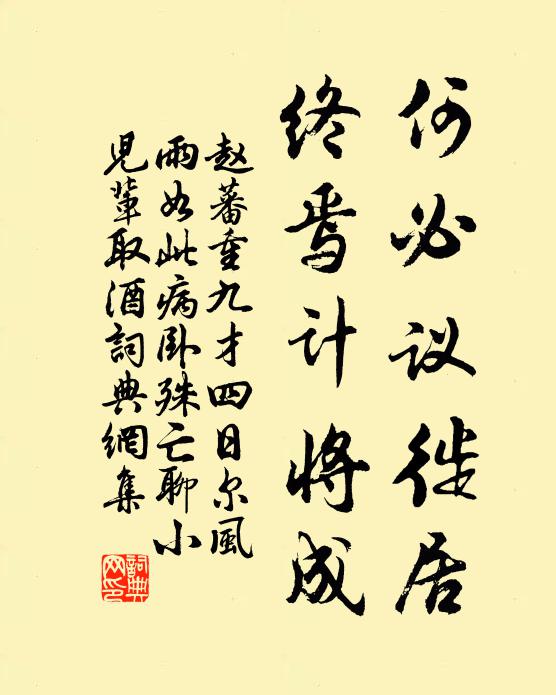 何必议徙居
终焉计将成
赵蕃重九才四日尔風
雨如此病卧殊亡聊小
児輩取酒詞典網集
詞典網印